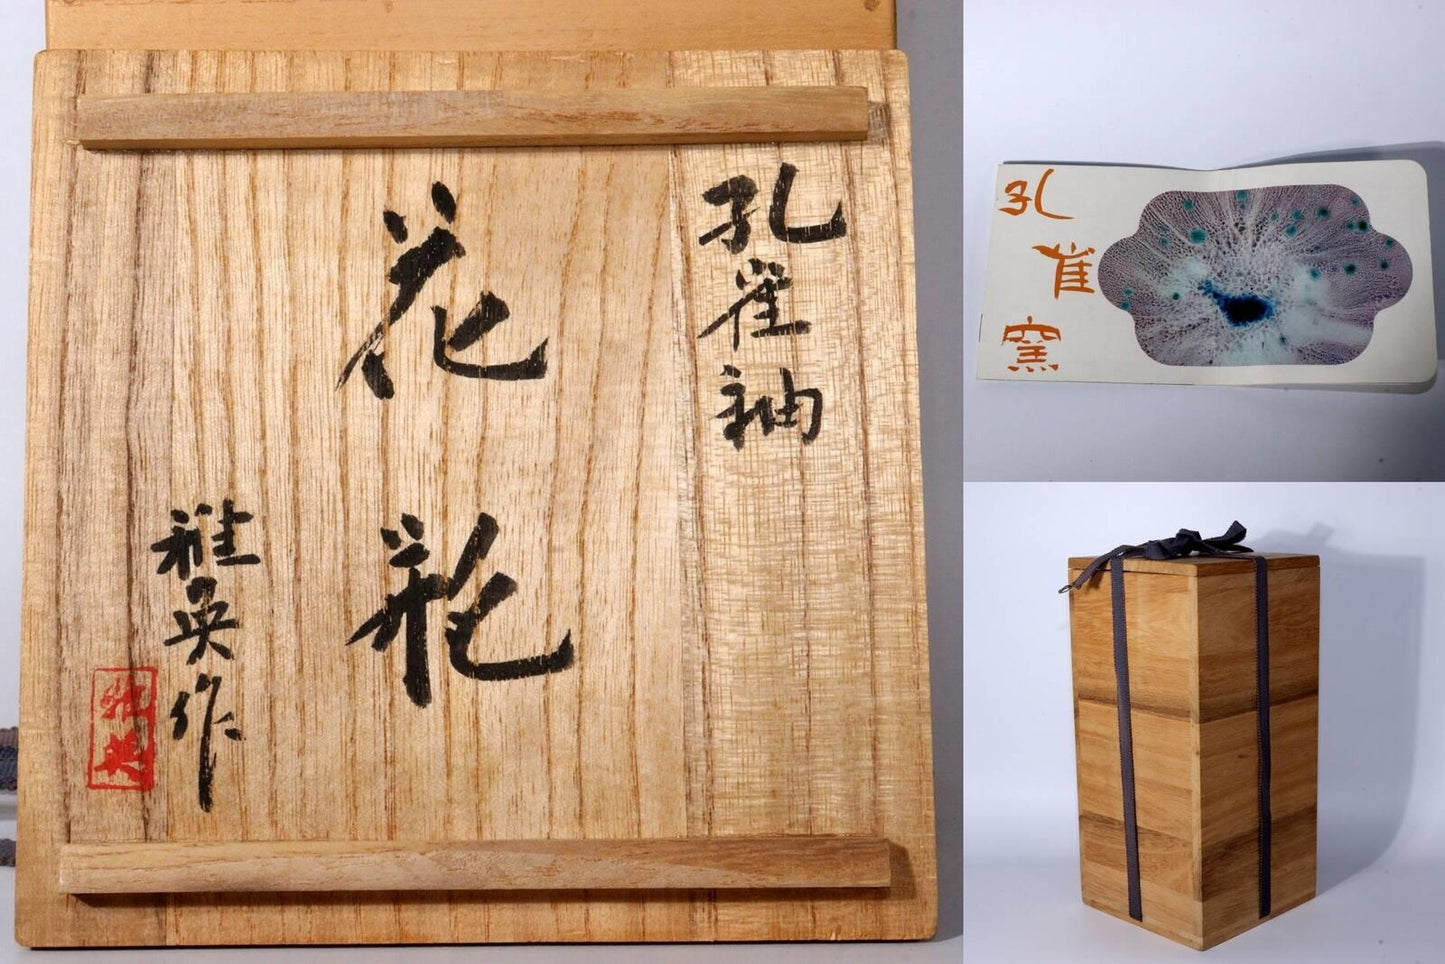 孔雀釉
花瓶
雅英作
雅英
孔雀窯